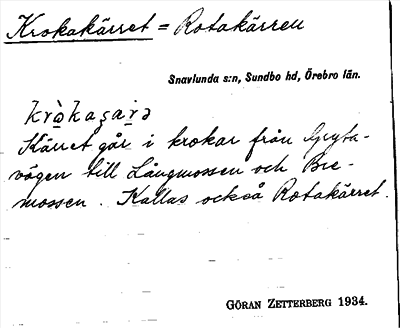 Krokakärret = Rotakärren
Snavlunda s:n, Sundbo hd, Örebro län.
krò̱kaʂai̱rə
Kärret går i krokar från Gryta-
vägen till Långmossen och Bre-
mossen. Kallas också Rotakärret.
GÖRAN ZETTERBERG 1934.